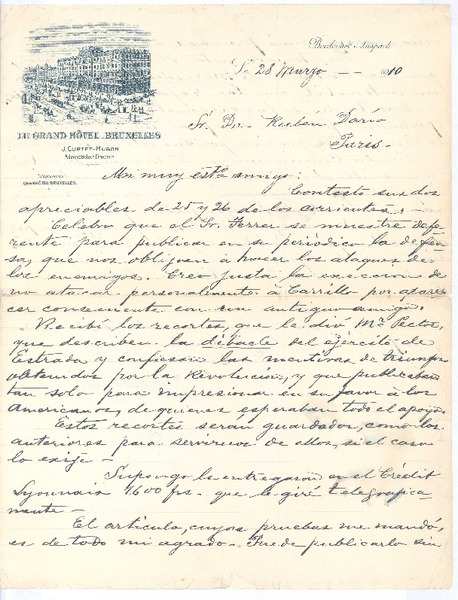 Boulevard Anspach
Le 28 Marzo — 1910
LE GRAND HÔTEL BRUXELLES
J. CURTET-HUGON
Administrateur-Directeur
GRAND HÔTEL-BRUXELLES
Sr. Dr. Rubén Darío
París.
Mi muy estdo amigo:
Contesto sus dos
apreciables de 25 y 26 de los corrientes: -
Celebro que el Sr. Ferrer se muestre defe-
rente para publicar en su periódico la defen-
sa, que nos obliguen á hacer los ataques de
los enemigos. Creo justa la excecion de
no atacar personalmente á Carrillo por apare-
cer consecuente con un antiguo amigo.
Recibí los recortes, que le dió Mr.
que describen la débacle del ejército de
Estrada y confiesan las mentiras de triunfos
obtenidos por la Revolución, y que publicaban
tan solo para impresionar en su favor á los
Americanos, de quienes esperaban todo el apoyo.
Estos recortes serán guardados, como los
anteriores para servirnos de ellos, si el caso
lo exige —
Supongo le entregaron en el Crédit
Lyonnais 1.600 frs. que le giré telegrafica
mente —
El artículo, cuyas pruebas me mandó,
es de todo mi agrado. Puede publicarlo sin